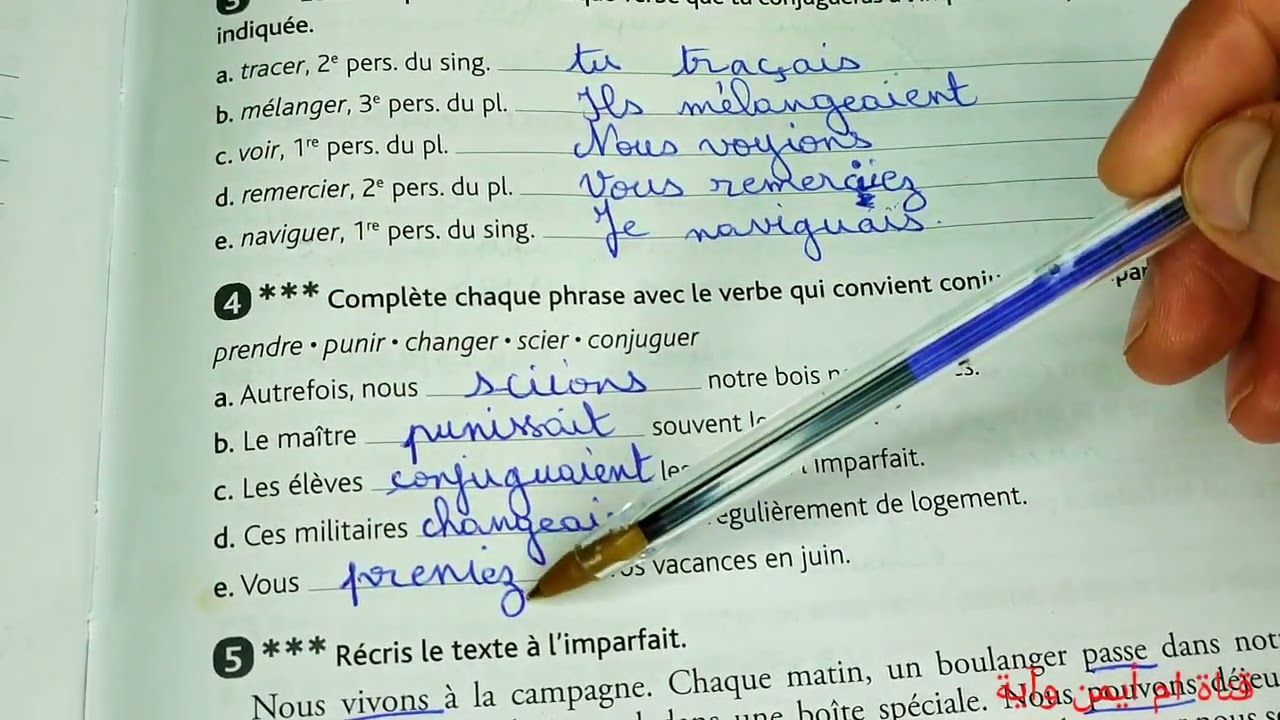 3 que verbe que tu conjugueras à l'imp
indiquée.
a. tracer, 2e pers. du sing. tu traçais
b. mélanger, 3e pers. du pl. Ils mélangeaient
c. voir, 1re pers. du pl. Nous voyions
d. remercier, 2e pers. du pl. Vous remerciiez
e. naviguer, 1re pers. du sing. Je naviguais.
4 *** Complète chaque phrase avec le verbe qui convient conju
prendre • punir • changer • scier • conjuguer
a. Autrefois, nous sciions notre bois
b. Le maître punissait souvent
c. Les élèves conjuguaient imparfait.
d. Ces militaires changeai égulièrement de logement.
e. Vous preniez vos vacances en juin.
5 *** Récris le texte à l'imparfait.
Nous vivons à la campagne. Chaque matin, un boulanger passe dans not
une boîte spéciale. Nous pouvons déjeu
قناة ام أيمن وآية